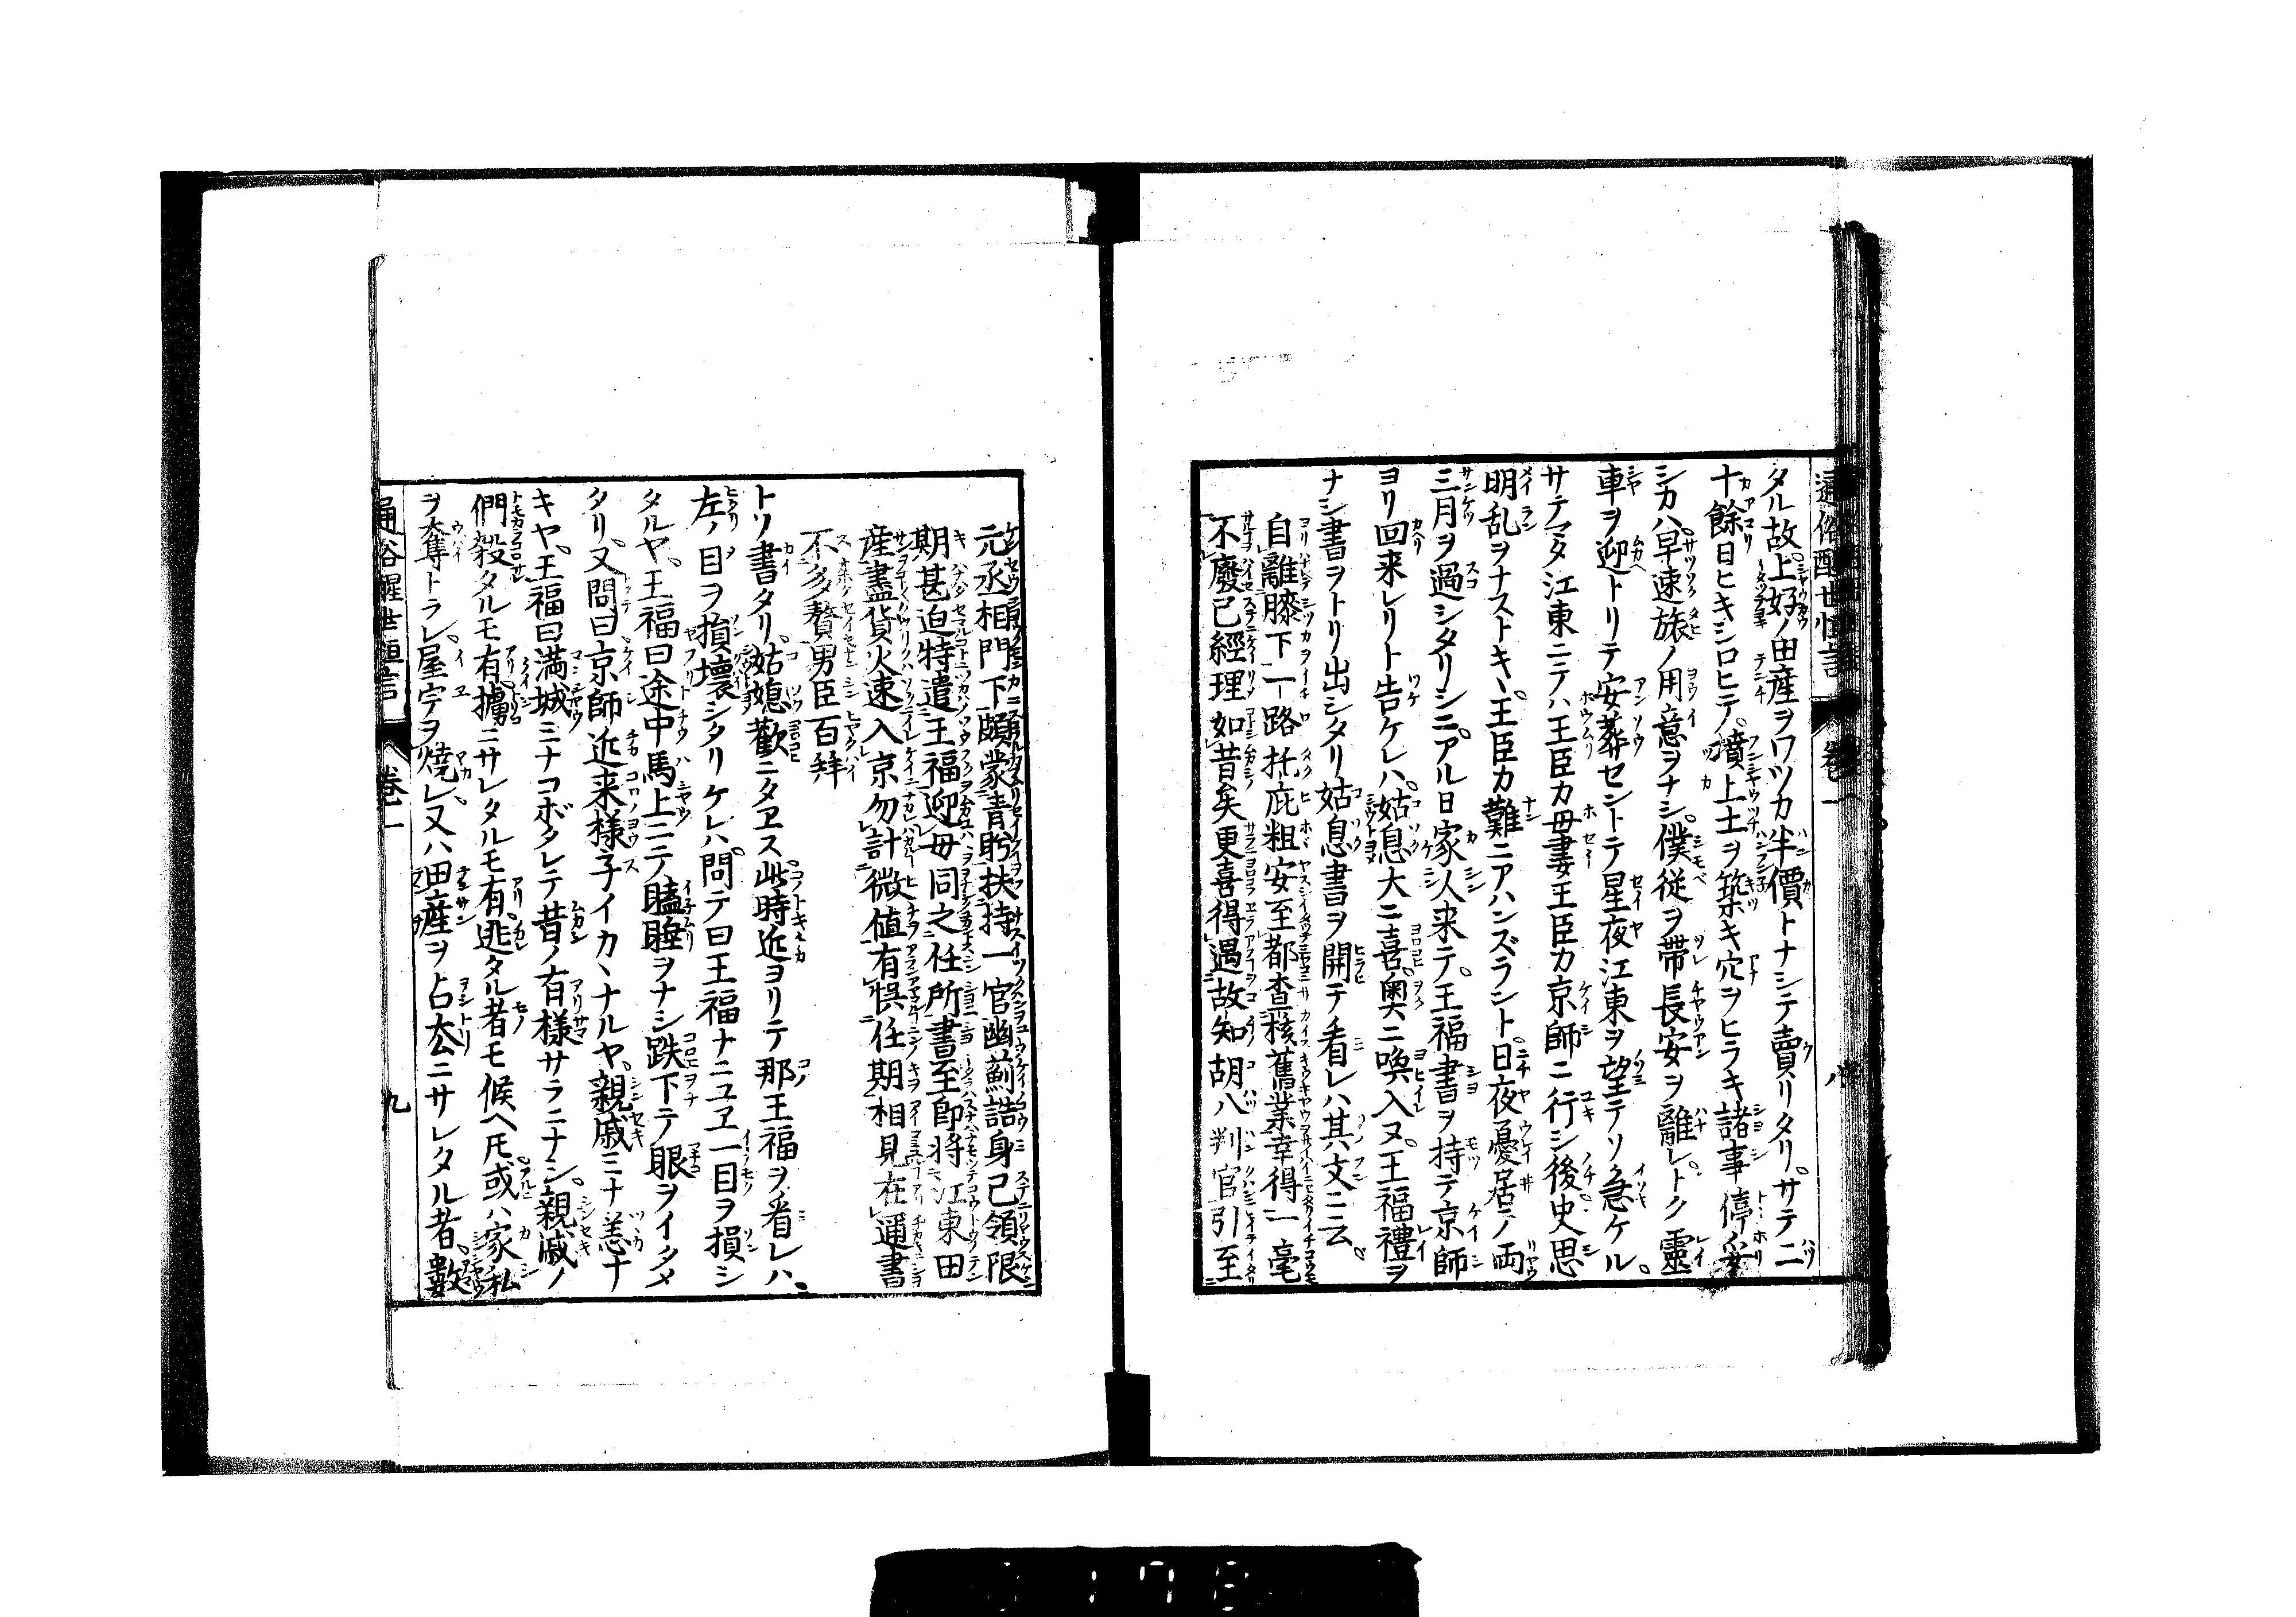 通俗醒世恒言 卷一 八
タル故。上好ノ田産ヲワツカ半價トナシテ賣リタリ。サテ二
十餘日ヒキシロヒテ。墳上土ヲ築キ穴ヲヒラキ諸事停妥
シカハ。早速旅ノ用意ヲナシ。僕従ヲ帯長安ヲ離レ。トク靈
車ヲ迎トリテ安葬セシトテ星夜江東ヲ望テソ急ケル。
サテマタ江東ニテハ王臣カ母妻王臣カ京師ニ行シ後。史思
明乱ヲナストキヽ。王臣カ難ニアハンズラント。日夜憂居テ両
三月ヲ過シタリシニ。アル日家人来テ。王福書ヲ持テ京師
ヨリ回来レリト告ケレハ。姑息大ニ喜。奥ニ喚入ヌ。王福禮ヲ
ナシ書ヲトリ出シタリ姑息書ヲ開テ看レハ其文ニ云。
自離膝下一路托庇粗安至都査核舊業幸得一毫
不廢已經理如昔矣更喜得遇故知胡八判官引至
元丞相門下頗蒙青盻扶持一官幽薊誥身已領限
期甚迫特遣王福迎母同之任所書至即将江東田
産盡貨火速入京勿計微値有悞任期相見在邇書
不多贅男臣百拜
トソ書タリ。姑媳歡ニタヱス。此時近ヨリテ那王福ヲ看レハ。
左ノ目ヲ損壞シタリケレハ。問テ曰王福ナニユヱ一目ヲ損シ
タルヤ。王福曰途中馬上ニテ瞌睡ヲナシ跌下テ眼ヲイタメ
タリ。又問曰京師近来様子イカヽナルヤ。親戚ミナ恙ナ
キヤ。王福曰満城ミナコボタレテ昔ノ有様サラニナシ。親戚ノ
們殺タルモ有。擄ニサレタルモ有。逃タル者モ候ヘ𪜈。或ハ家私
ヲ奪トラレ。屋宇ヲ燒レ。又ハ田産ヲ占厺ニサレタル者。數
通俗醒世恒言 卷一 九
178